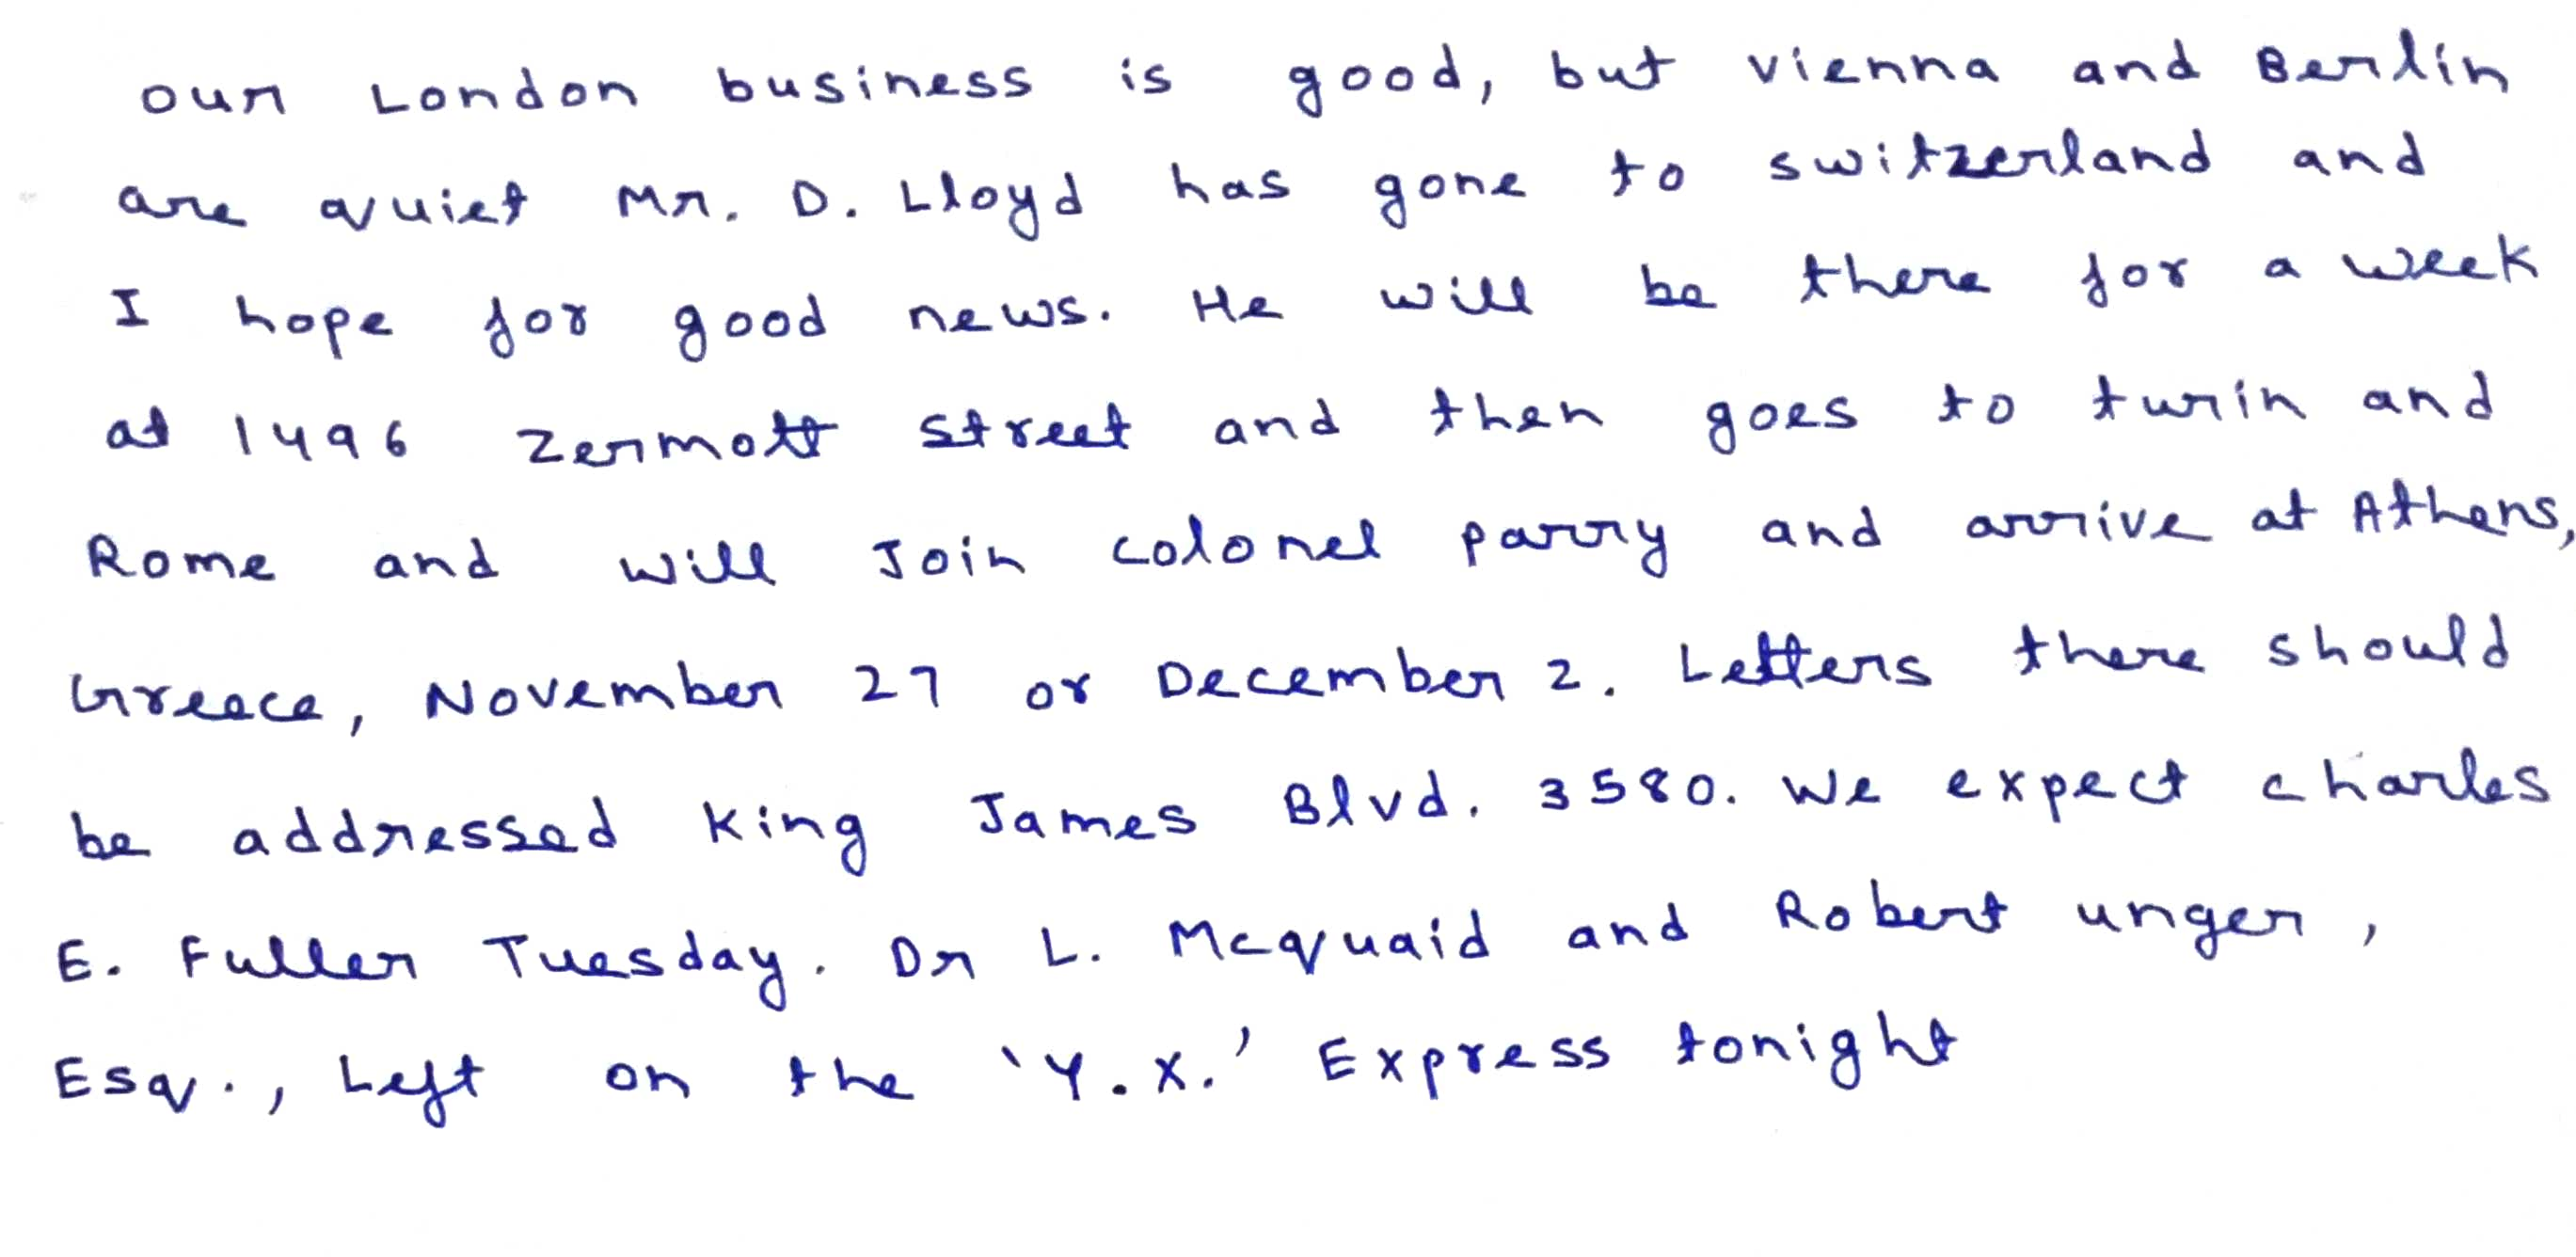 our London business is good, but vienna and Berlin
are quiet Mr. D. Lloyd has gone to switzerland and
I hope for good news. He will be there for a week
at 1496 zermott street and then goes to turin and
Rome and will Join colonel parry and arrive at Athens,
Greece, November 27 or December 2. Letters there should
be addressed King James Blvd. 3580. We expect charles
E. Fuller Tuesday. Dr L. Mcquaid and Robert unger,
Esq., Left on the 'Y.X.' Express tonight